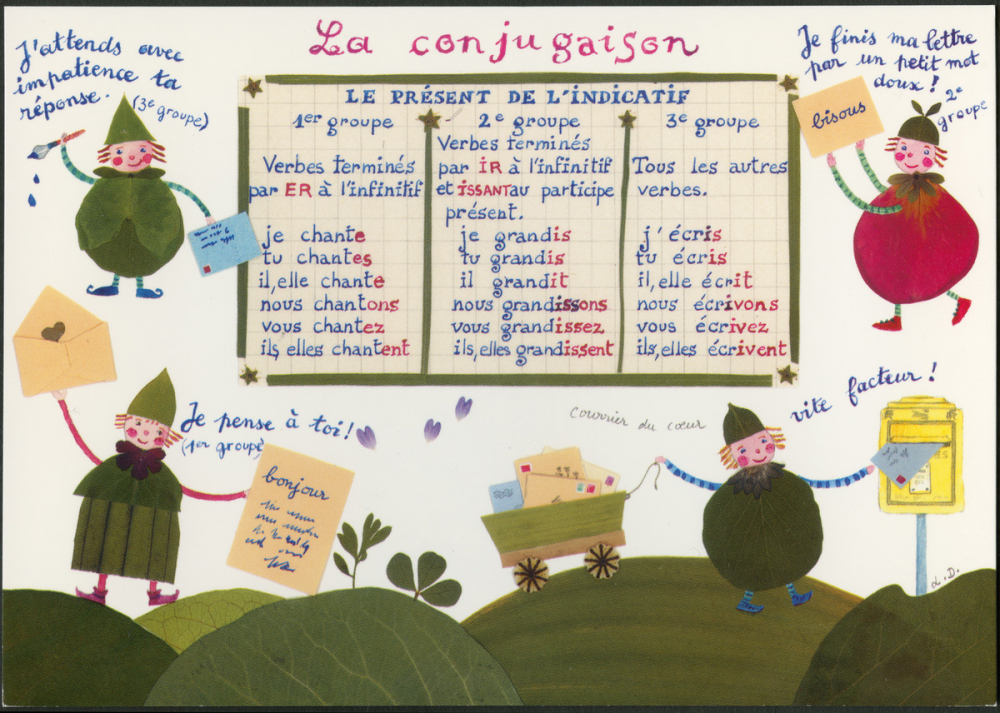 La conjugaison
J'attends avec
impatience ta
réponse.
(3e groupe)
Je finis ma lettre
par un petit mot
doux !
2e
groupe
bisous
LE PRÉSENT DE L'INDICATIF
1er groupe
Verbes terminés
par ER à l'infinitif
je chante
tu chantes
il, elle chante
nous chantons
vous chantez
ils, elles chantent
2e groupe
Verbes terminés
par IR à l'infinitif
et ISSANT au participe
présent.
je grandis
tu grandis
il grandit
nous grandissons
vous grandissez
ils, elles grandissent
3e groupe
Tous les autres
verbes.
j'écris
tu écris
il, elle écrit
nous écrivons
vous écrivez
ils, elles écrivent
Je pense à toi !
(1er groupe)
bonjour
Courrier du cœur
vite facteur !
L.D.